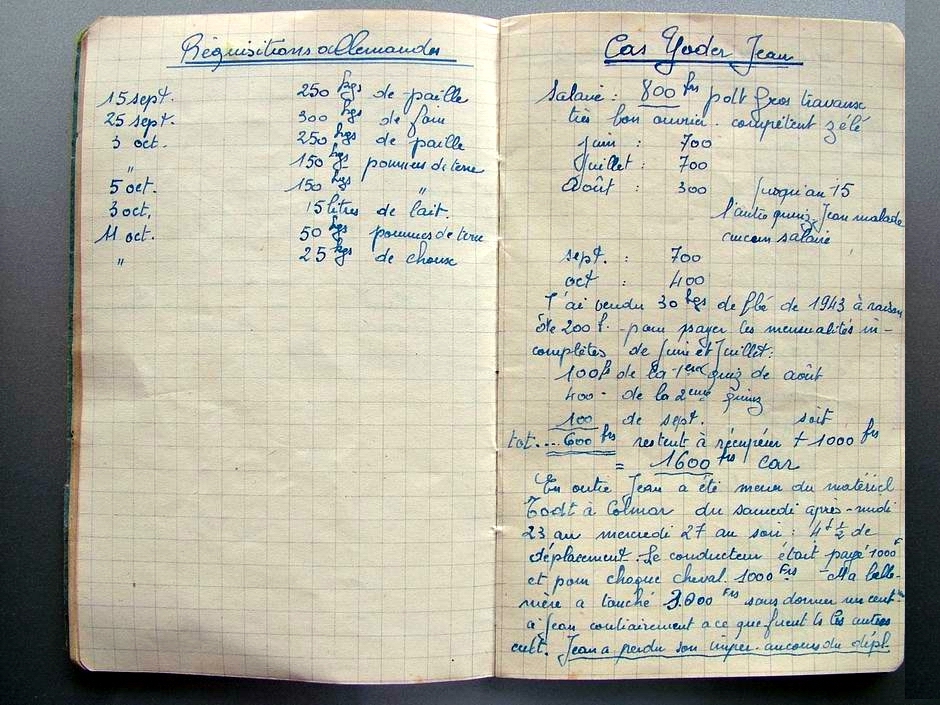 Réquisitions allemandes
15 sept. 250 kgs de paille
25 sept. 300 kgs de foin
3 oct. 250 kgs de paille
" 150 kgs pommes de terre
5 oct. 150 kgs "
3 oct. 15 litres de lait.
11 oct. 50 kgs pommes de terre
" 25 kgs de choux
Cas Yoder Jean
Salaire : 800 frs pdt gros travaux
très bon ouvrier. compétent zélé
Juin : 700
Juillet : 700
Août : 300 jusqu'au 15
l'autre quinz. Jean malade
aucun salaire
sept. : 700
oct : 400
J'ai vendu 30 kgs de blé de 1943 à raison
de 200 f. pour payer les mensualités in-
complètes de Juin et Juillet :
100 f de la 1ère quinz de août
400 - de la 2ème quinz
100 de sept. soit
tot... 600 frs restent à récupérer + 1000 frs
= 1600 frs car
En outre Jean a été meneur du matériel
Todt à Colmar du samedi après-midi
23 au mercredi 27 au soir : 4 j ½ de
déplacement. Le conducteur était payé 1000 F
et pour chaque cheval 1000 Frs - Ma belle-
mère a touché 3.000 Frs sans donner un cent.
à Jean contrairement à ce que firent ts les autres
cult. Jean a perdu son imper. au cours du dépl.